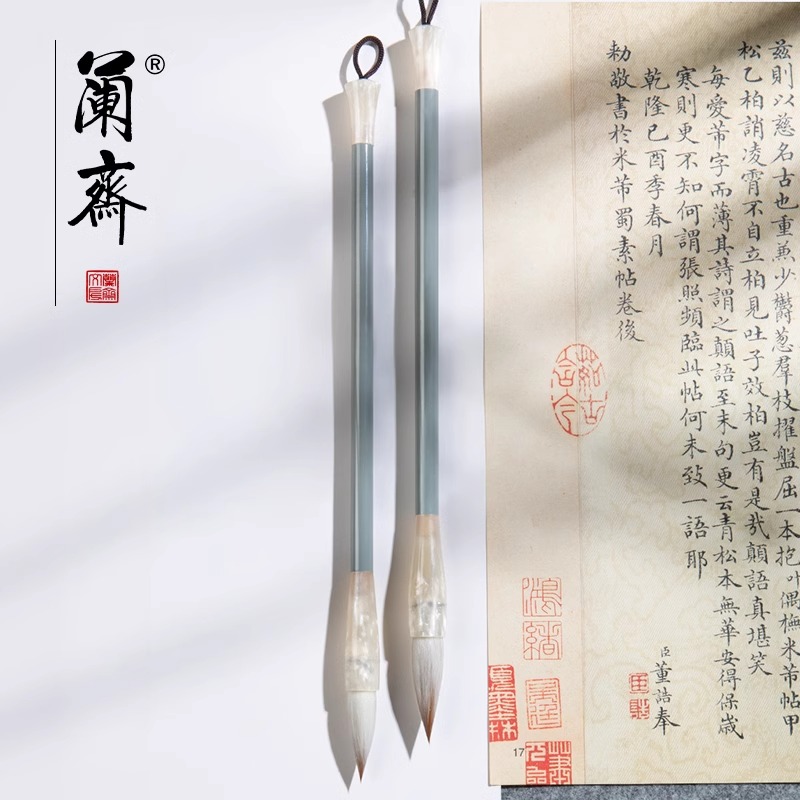 阑齋®
茲則以慈名古也重兼少欝葱羣枝擢盤屈一本抱叶偶橅米芾帖甲
松乙柏誚凌霄不自立柏見吐子效柏豈有是哉顛語真堪笑
每愛芾字而薄其詩謂之顛語至末句更云青松本無華安得保歲
寒則更不知何謂張照頻臨此帖何未致一語耶
乾隆己酉季春月
臣董誥奉
勑敬書於米芾蜀素帖卷後
茹古含今
17